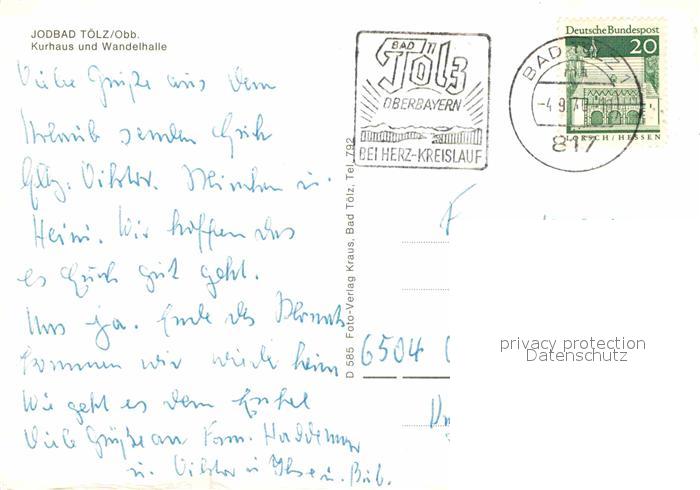 JODBAD TÖLZ/Obb.
Kurhaus und Wandelhalle
Viele Grüße aus dem
Urlaub senden Euch
Viktor. u.
Heini. Wir hoffen das
es Euch gut geht.
Uns ja. Ende des Monats
kommen wir wieder heim
Wie geht es dem Enkel
Viele Grüße an Fam.
u. Viktor u.
D 585 Foto-Verlag Kraus, Bad Tölz, Tel. 792
BAD
Tölz
OBERBAYERN
BEI HERZ-KREISLAUF
BAD TÖLZ 1
-4.9.70
817
Deutsche Bundespost
20
LORSCH/HESSEN
6504
privacy protection
Datenschutz